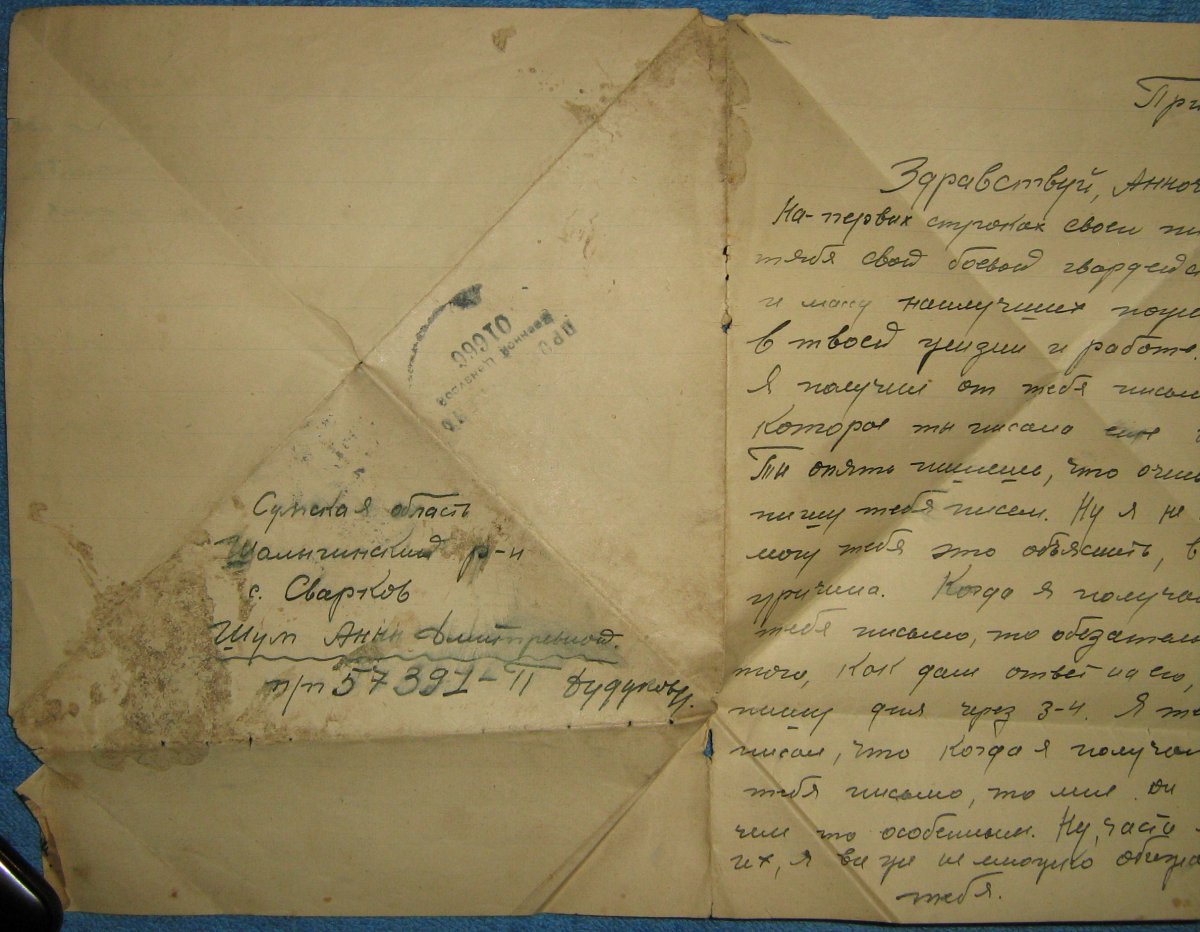 ПРО
Военной Цензурой
01666
Сумская область
Шалыгинский р-н
с. Сварков
Шум Анны Дмитревной.
п/п 57391-П Дудуков
При
Здравствуй, Анноч
На-первых строках своей пи
тября свой боевой гвардейс
и наилучших поже
в твоей жизни и работе.
Я получил от тебя письм
которое ты писала еще
Ты опять пишешь, что очень
пишу тебя писем. Ну я не
могу тебя это объяснить, в
причина. Когда я получа
тебя письмо, то обезатель
того, как дам ответ на его,
пишу дня через 3-4. Я т
писал, что когда я получа
тебя письмо, то мне
чем то особенным. Ну, часы
их, я все же немножко обижа
тебя.